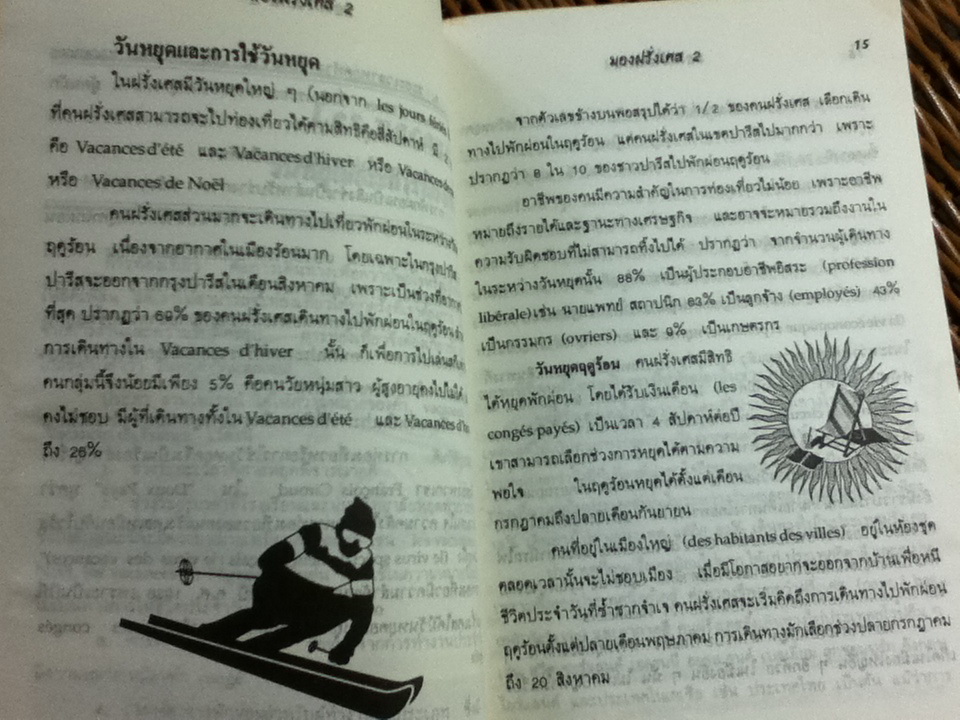 มองฝรั่งเศส 2
วันหยุดและการใช้วันหยุด
ในฝรั่งเศสมีวันหยุดใหญ่ ๆ (นอกจาก les jours fériés
ที่คนฝรั่งเศสสามารถจะไปท่องเที่ยวได้ตามสิทธิคือสี่สัปดาห์ มี 2
คือ Vacances d'été และ Vacances d'hiver หรือ Vacances
หรือ Vacances de Noël
คนฝรั่งเศสส่วนมากจะเดินทางไปเที่ยวพักผ่อนในระหว่าง
ฤดูร้อน เนื่องจากอากาศในเมืองร้อนมาก โดยเฉพาะในกรุงปารีส
ปารีสจะออกจากกรุงปารีสในเดือนสิงหาคม เพราะเป็นช่วงที่
ที่สุด ปรากฏว่า 69% ของคนฝรั่งเศสเดินทางไปพักผ่อนในฤดูร้อน
การเดินทางใน Vacances d'hiver นั้น ก็เพื่อการไปเล่นสกี
คนกลุ่มนี้จึงน้อยมีเพียง 5% คือคนวัยหนุ่มสาว ผู้สูงอายุคงไปไม่ได้
คงไม่ชอบ มีผู้ที่เดินทางทั้งใน Vacances d'été และ Vacances
ถึง 26%
มองฝรั่งเศส 2 15
จากตัวเลขข้างบนพอสรุปได้ว่า 1/2 ของคนฝรั่งเศส เลือกเดิน
ทางไปพักผ่อนในฤดูร้อน แต่คนฝรั่งเศสในเขตปารีสไปมากกว่า เพราะ
ปรากฏว่า 8 ใน 10 ของชาวปารีสไปพักผ่อนฤดูร้อน
อาชีพของคนมีความสำคัญในการท่องเที่ยวไม่น้อย เพราะอาชีพ
หมายถึงรายได้และฐานะทางเศรษฐกิจ และอาจจะหมายรวมถึงงานใน
ความรับผิดชอบที่ไม่สามารถทิ้งไปได้ ปรากฏว่า จากจำนวนผู้เดินทาง
ในระหว่างวันหยุดนั้น 86% เป็นผู้ประกอบอาชีพอิสระ (profession
libérale) เช่น นายแพทย์ สถาปนิก 63% เป็นลูกจ้าง (employés) 43%
เป็นกรรมกร (ovriers) และ 9% เป็นเกษตรกร
วันหยุดฤดูร้อน คนฝรั่งเศสมีสิทธิ
ได้หยุดพักผ่อน โดยได้รับเงินเดือน (les
congés payés) เป็นเวลา 4 สัปดาห์ต่อปี
เขาสามารถเลือกช่วงการหยุดได้ตามความ
พอใจ ในฤดูร้อนหยุดได้ตั้งแต่เดือน
กรกฎาคมถึงปลายเดือนกันยายน
คนที่อยู่ในเมืองใหญ่ (des habitants des villes) อยู่ในห้องชุด
ตลอดเวลานั้นจะไม่ชอบเมือง เมื่อมีโอกาสอยากจะออกจากบ้านเพื่อหนี
ชีวิตประจำวันที่ซ้ำซากจำเจ คนฝรั่งเศสจะเริ่มคิดถึงการเดินทางไปพักผ่อน
ฤดูร้อนตั้งแต่ปลายเดือนพฤษภาคม การเดินทางมักเลือกช่วงปลายกรกฎาคม
ถึง 20 สิงหาคม